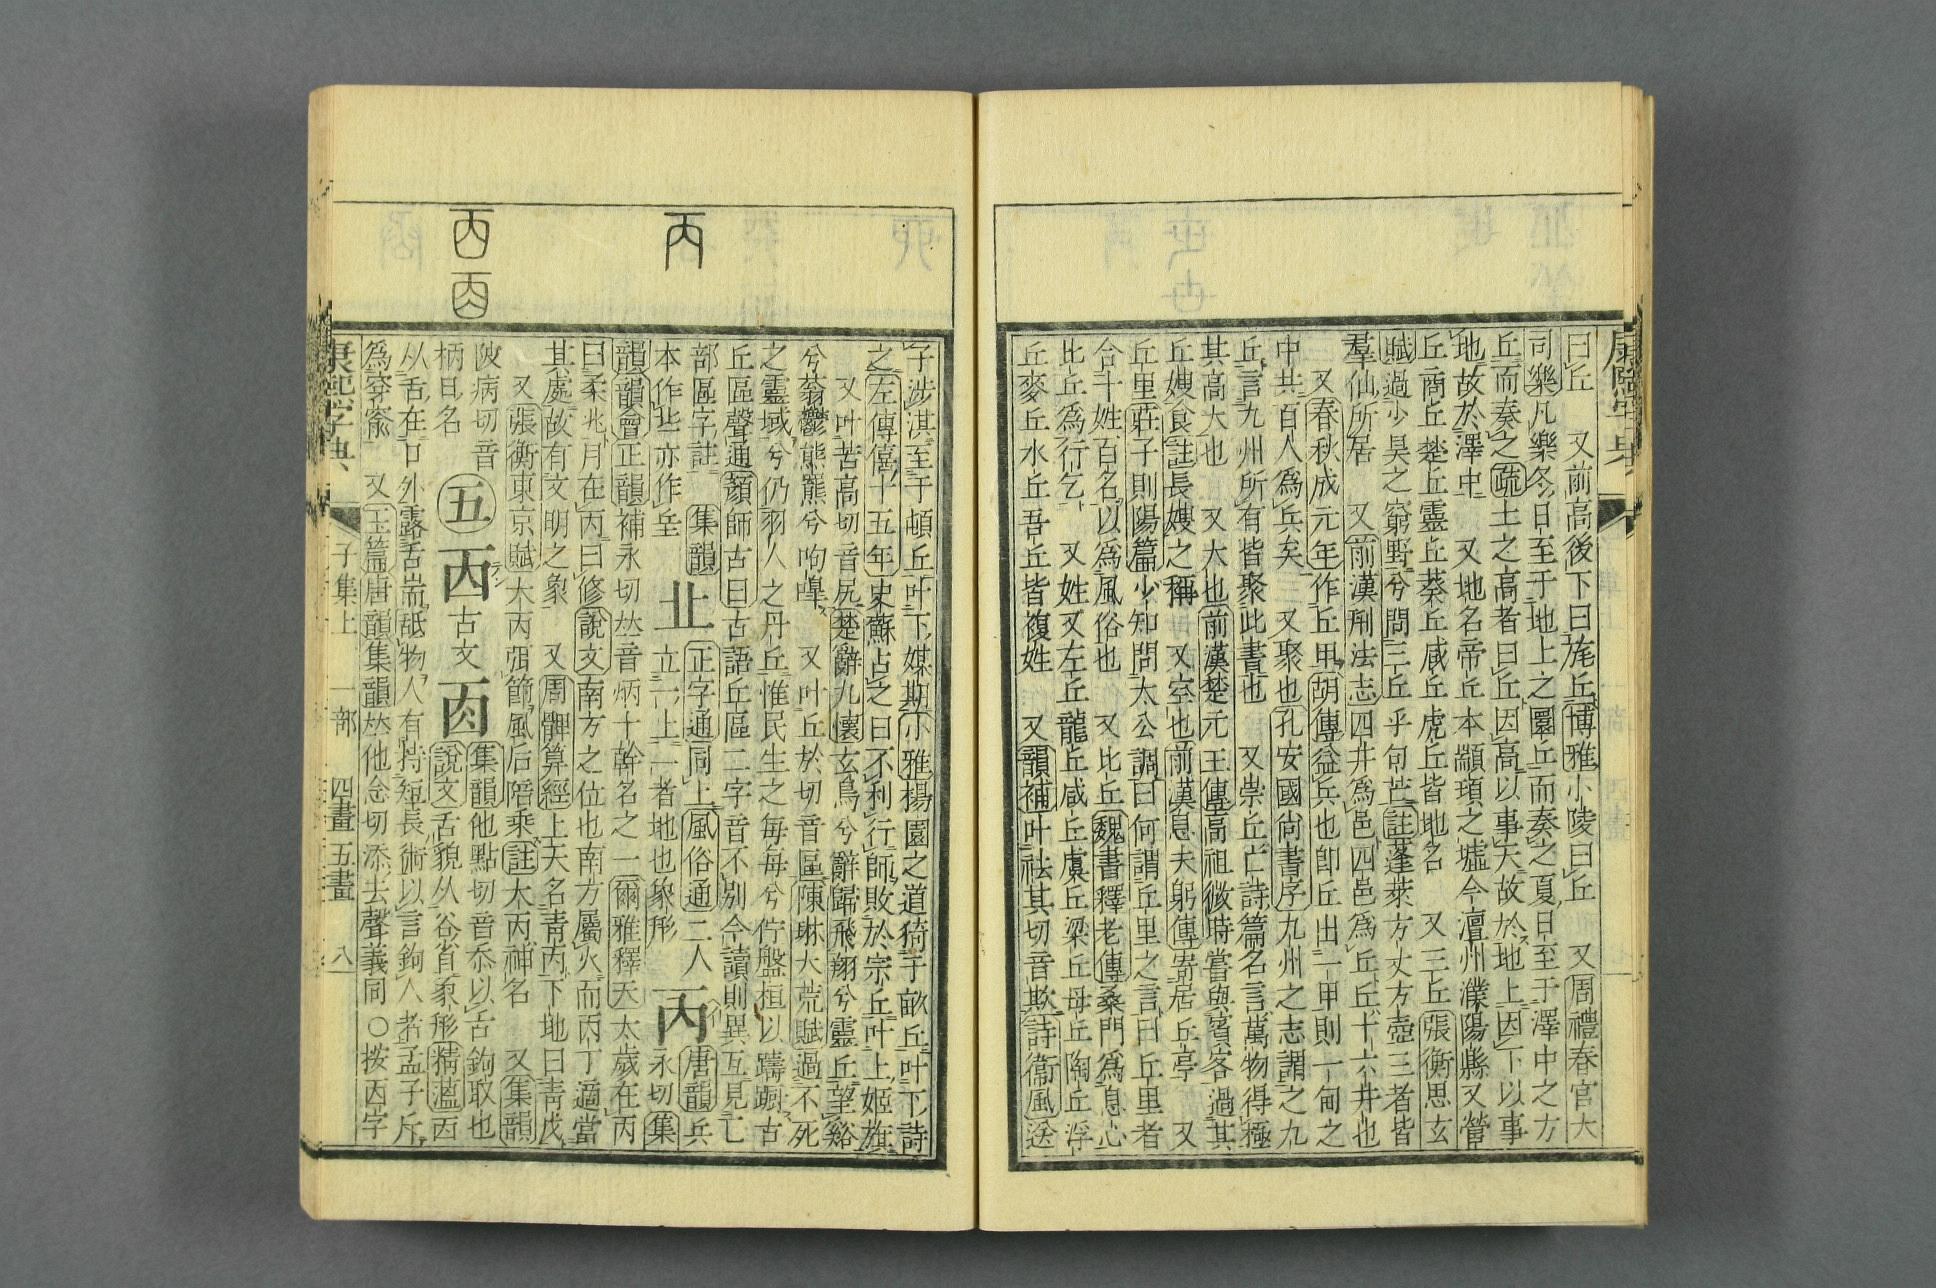 曰丘　又前高後下曰旄丘博雅小陵曰丘　又周禮春官大
司樂凡樂冬日至于地上之圜丘而奏之夏日至于澤中之方
丘而奏之疏土之高者曰丘因高以事天故於地上因下以事
地故於澤中　又地名帝丘本顓頊之墟今澶州濮陽縣又營
丘商丘楚丘靈丘葵丘咸丘虎丘皆地名　又三丘張衡思玄
賦過少昊之窮野兮問三丘乎句芒註蓬萊方丈方壺三者皆
羣仙所居　又前漢𠛬法志四井爲邑四邑爲丘丘十六井也
　又春秋成元年作丘甲胡傳益兵也卽丘出一甲則一甸之
中共百人爲兵矣　又聚也孔安國尚書序九州之志謂之九
丘言九州所有皆聚此書也　又崇丘亡詩篇名言萬物得極
其高大也　又大也前漢楚元王傳高祖微時嘗與賓客過其
丘嫂食註長嫂之稱　又空也前漢息夫躬傳寄居丘亭　又
丘里莊子則陽篇少知問太公調曰何謂丘里之言曰丘里者
合十姓百名以爲風俗也　又比丘魏書釋老傳桑門爲息心
比丘爲行乞　又姓又左丘龍丘咸丘虞丘梁丘母丘陶丘浮
丘麥丘水丘吾丘皆複姓　又韻補叶袪其切音欺詩衞風送
子涉淇至于頓丘叶下媒期小雅楊園之道猗于畝丘叶下詩
之左傳僖十五年史蘇占之曰不利行師敗於宗丘叶上姬旗
　又叶苦高切音尻楚辭九懷玄鳥兮辭歸飛翔兮靈丘望谿
兮蓊鬱熊羆兮呴嘷　又叶丘於切音區陳琳大荒賦過不死
之靈域兮仍羽人之丹丘惟民生之每每兮佇盤桓以躊躇古
丘區聲通顏師古曰古語丘區二字音不別今讀則異互見匸
部區字註　集韻
本作𠀉亦作㘳
正字通同上風俗通二人
立一上一者地也象形
丙
丙
唐韻兵
永切集
韻韻會正韻補永切𠀤音炳十幹名之一爾雅釋天太歲在丙
曰柔兆月在丙曰修說文南方之位也南方屬火而丙丁適當
其處故有文明之象　又周髀算經上天名靑丙下地曰靑戊
　又張衡東京賦大丙弭節風后陪乘註大丙神名　又集韻
陂病切音
柄日名
𠀬
㐁
五
㐁
古文
𠀬
集韻他點切音忝以舌鉤取也
說文舌貌从谷省象形精薀㐁
从舌在口外露舌耑䑛物人有持短長術以言鉤人者孟子斥
爲穿窬　又玉篇唐韻集韻𠀤他念切添去聲義同○按㐁字
康熙字典
子集上　一部　四畫　五畫
八